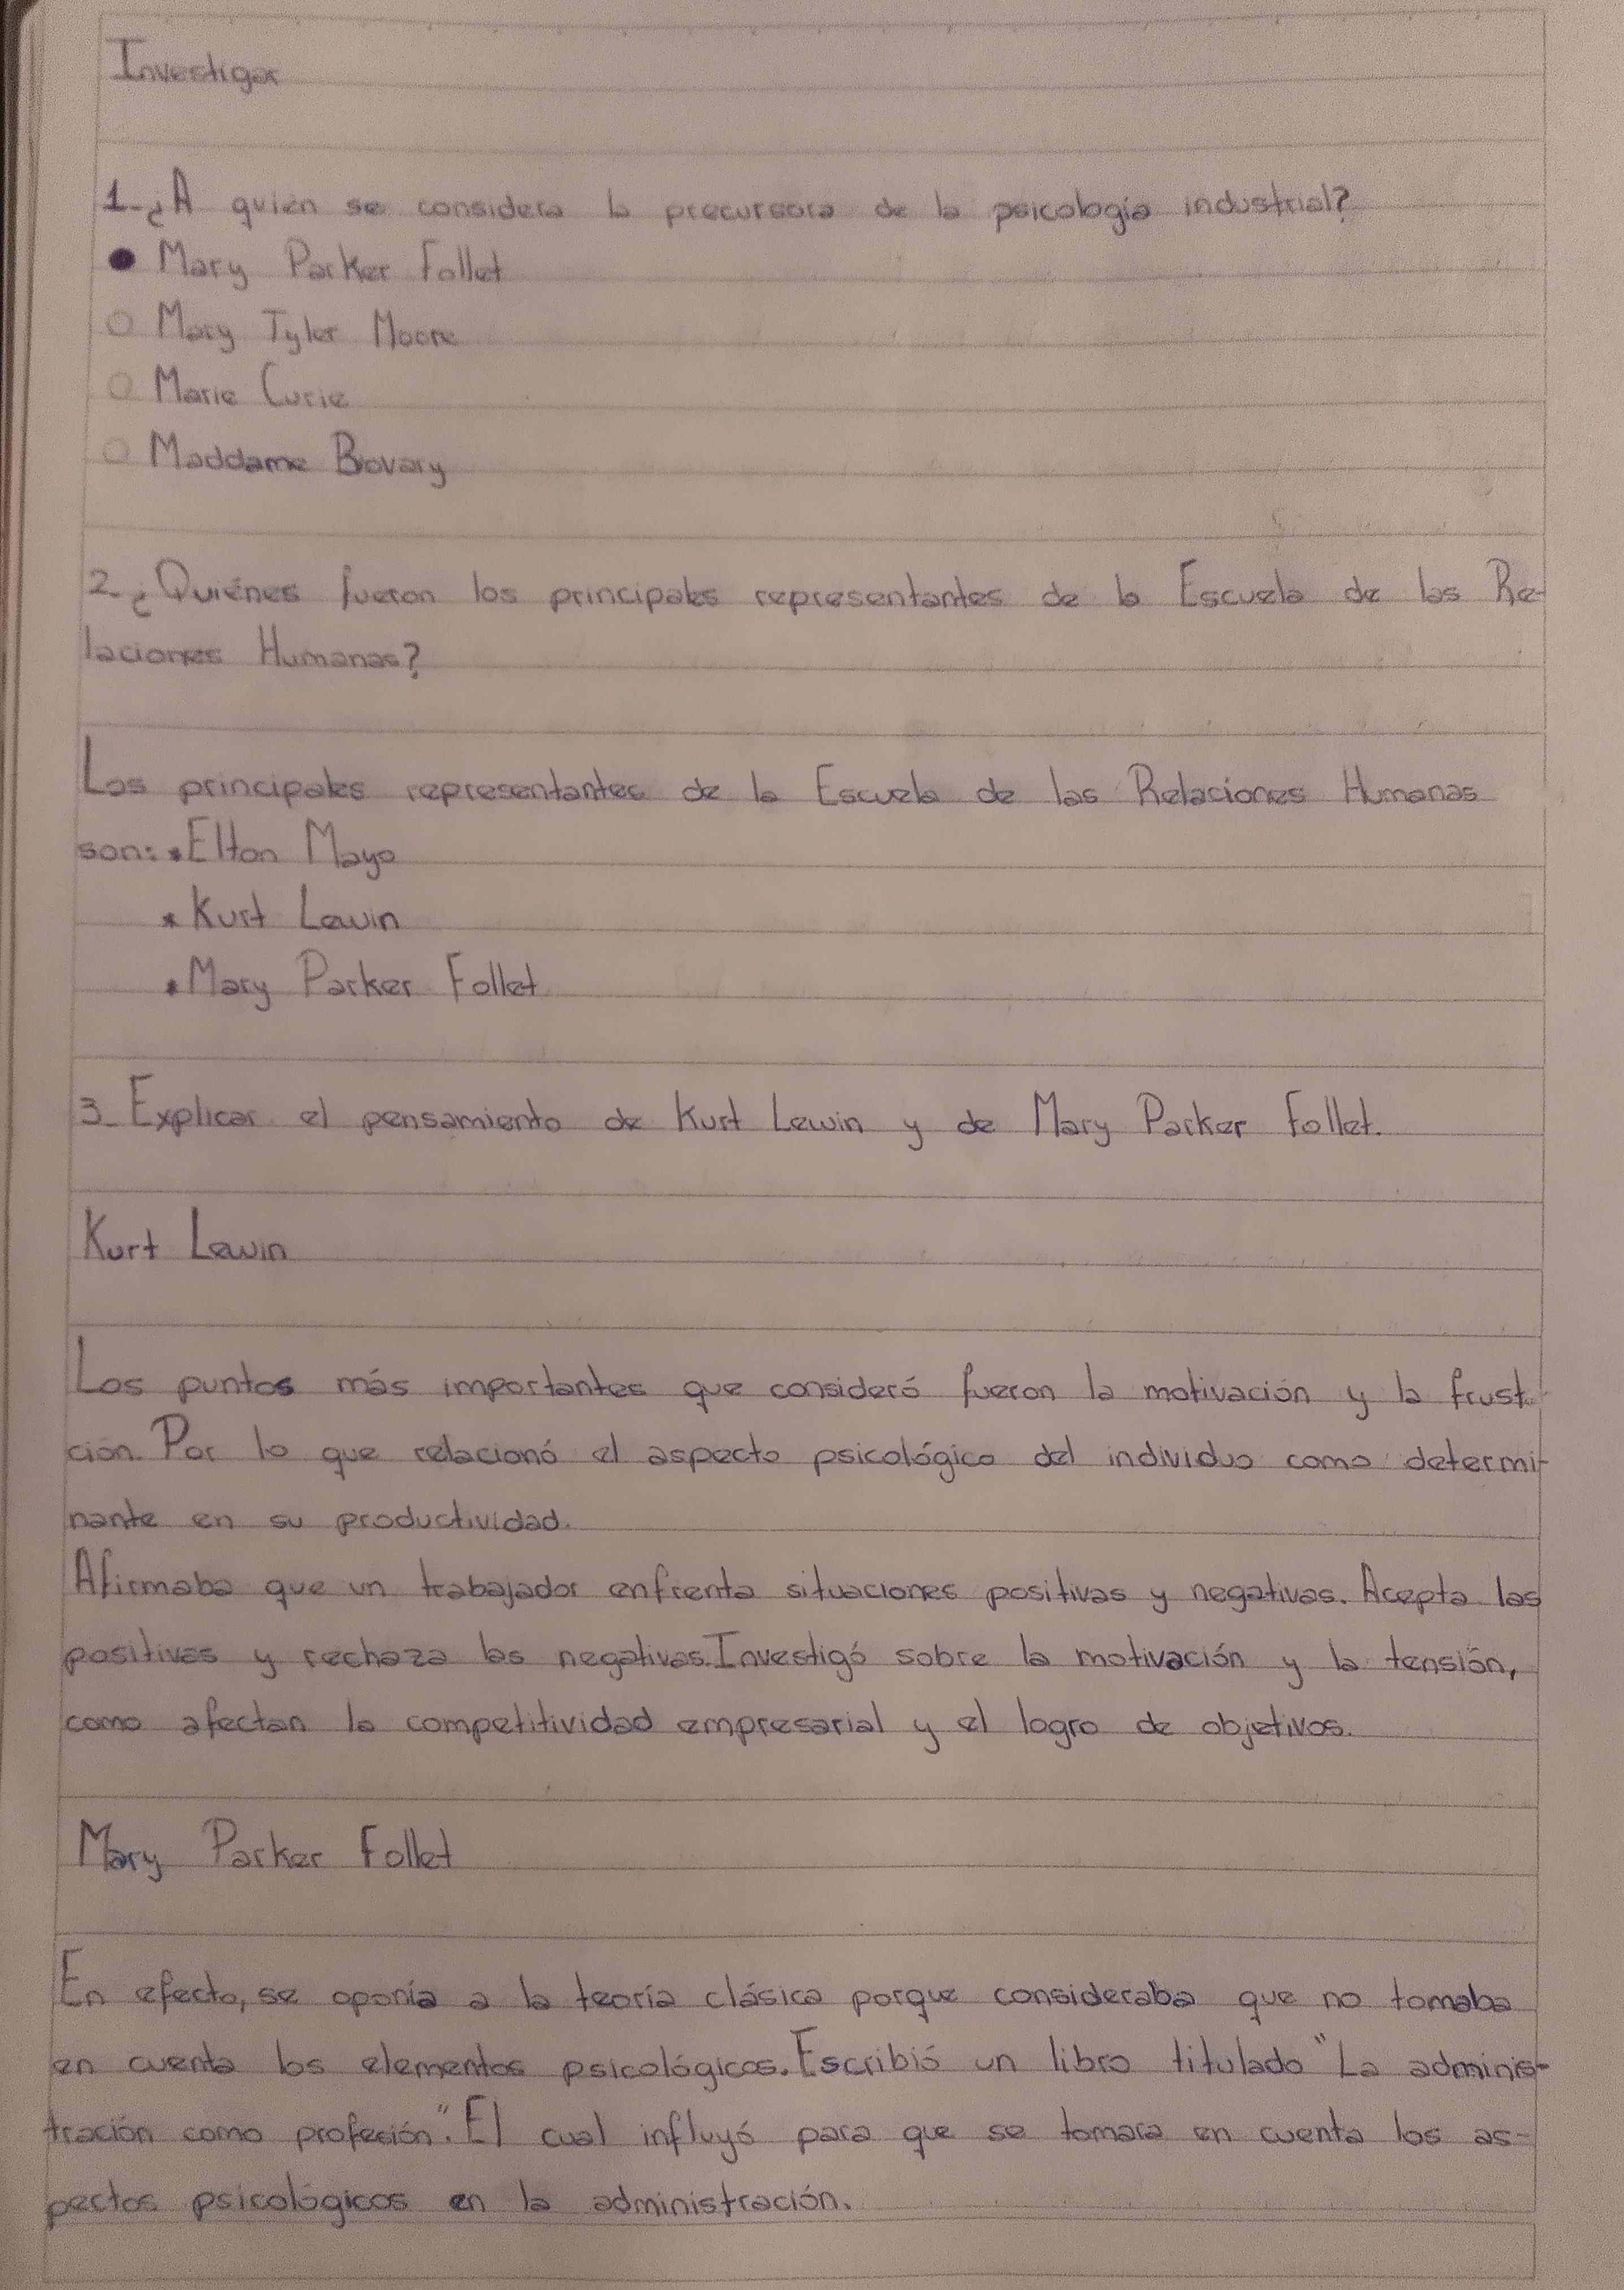 Investigar
1-¿A quién se considera la precursora de la psicología industrial?
Mary Parker Follet
Mary Tyler Moore
Marie Curie
Maddame Bovary
2-¿Quiénes fueron los principales representantes de la Escuela de las Re-
laciones Humanas?
Los principales representantes de la Escuela de las Relaciones Humanas
son: *Elton Mayo
*Kurt Lewin
*Mary Parker Follet
3-Explicar el pensamiento de Kurt Lewin y de Mary Parker Follet.
Kurt Lewin
Los puntos más importantes que consideró fueron la motivación y la
ción. Por lo que relacionó el aspecto psicológico del individuo como determi-
nante en su productividad.
Afirmaba que un trabajador enfrenta situaciones positivas y negativas. Acepta las
positivas y rechaza las negativas. Investigó sobre la motivación y la tensión,
como afectan la competitividad empresarial y el logro de objetivos.
Mary Parker Follet
En efecto, se oponía a la teoría clásica porque consideraba que no tomaba
en cuenta los elementos psicológicos. Escribió un libro titulado "La adminis-
tración como profesión". El cual influyó para que se tomara en cuenta los as-
pectos psicológicos en la administración.